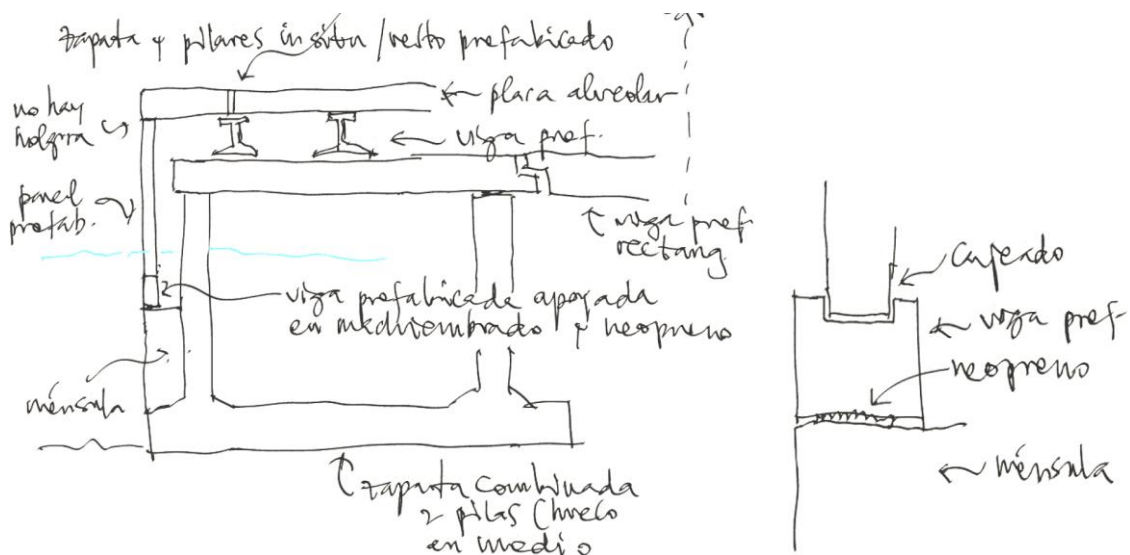 zapata y pilares in situ / resto prefabricado
no hay
holgura
placa alveolar
viga pref.
panel
prefab.
viga pref
rectang
viga prefabricada apoyada
en y neopreno
ménsula
zapata combinada
2 pilas (hueco
en medio
cajeado
viga pref
neopreno
ménsula